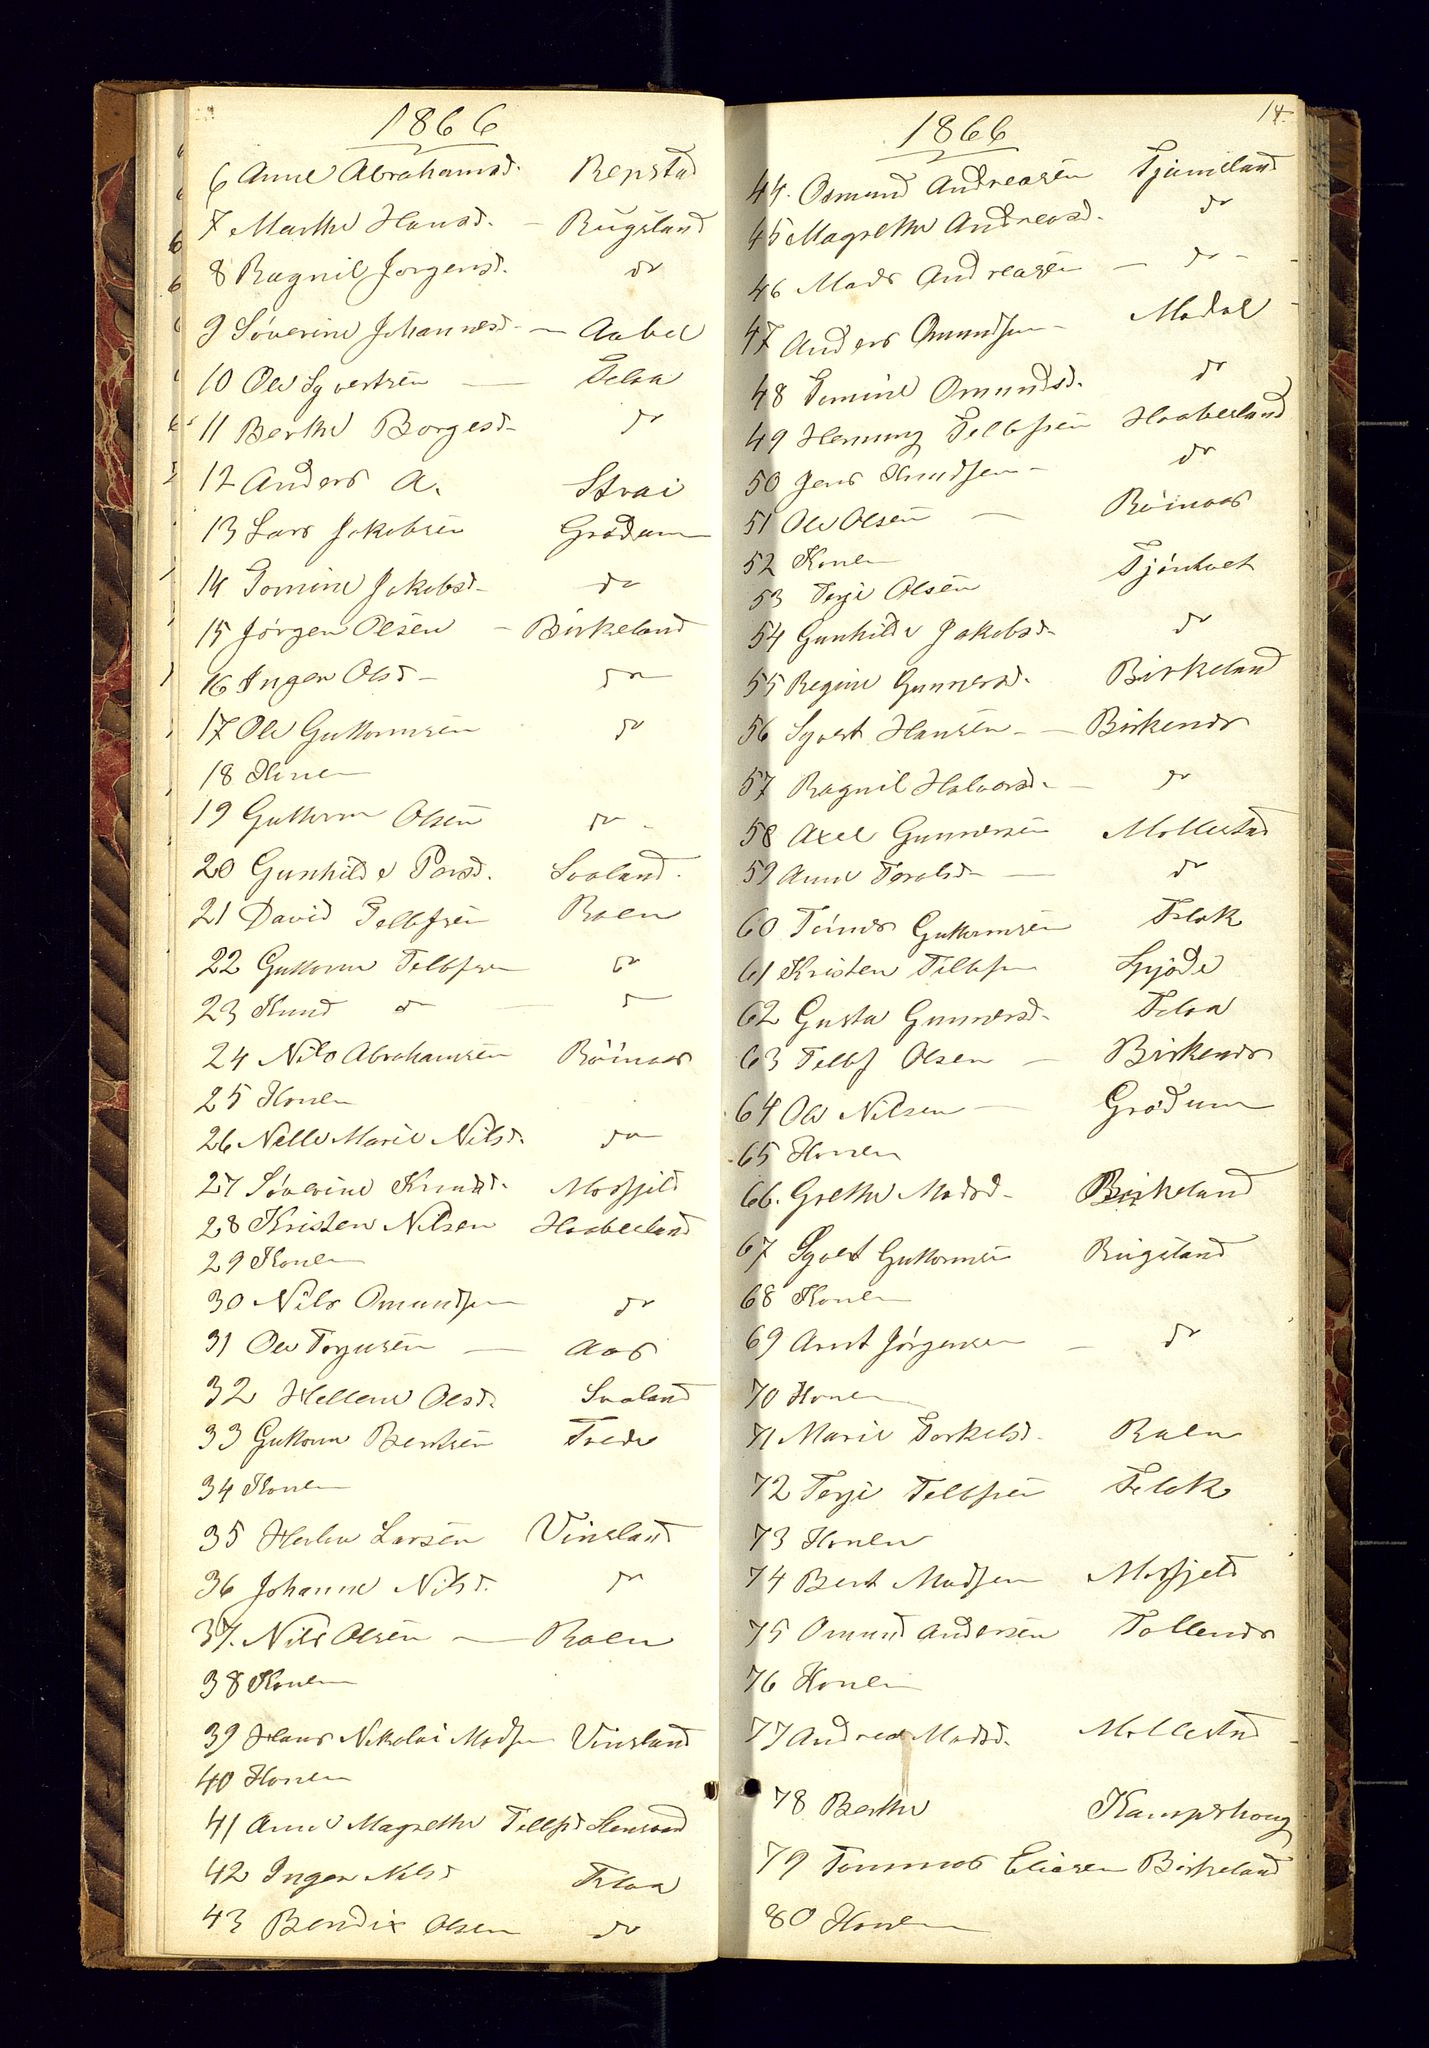 1866
6 Anne Abrahamsd. Repstad
7 Marthe Hansd. — Rugsland
8 Ragnil Jorgensd. do
9 Søverine Johannesd. — Aabel
10 Ole Syvertsen — Teloa
11 Berthe Borgesd. do
12 Anders A. Strai
13 Lars Jakobsen Grødum
14 Tomine Jakobsd. do
15 Jørgen Olsen — Birkeland
16 Inger Olsd — do
17 Ole Guttormsen do
18 Konen
19 Guttorm Olsen do
20 Gunhilde Persd. Svaland.
21 David Tellefsen Roen
22 Guttorm Tellefsen do
23 Knud do — do
24 Nils Abrahamsen Röinaas
25 Konen
26 Nelle Marie Nilsd. do
27 Søverine Knudsd. Mosfjeld
28 Kristen Nilsen Haabesland
29 Konen
30 Nils Omundsen do
31 Ole Terjusen — Aas
32 Hellene Olsd. Svaland
33 Guttorm Bentsen Trede
34 Konen
35 Larsen Vinsland
36 Johanne Nilsd. do
37. Nils Olsen — Roen
38 Konen
39 Hans Nikolai Madsen Vinsland
40 Konen
41 Anne Magrethe Tellefsd
42 Inger Nilsd Teloa
43 Bendix Olsen do
14.
1866
44. Osmund Andreasen Tjomeland
45 Magrethe Andreasd. do
46 Mads Andreasen — do -
47 Anders Omundsen - Modal
48 Tomine Omundsd. do
49 Henning Tellefsen Haabesland
50 Jens Knudsen — do
51 Ole Olsen — Röinaas
52 Konen
53 Terje Olsen Tjönhaet
54 Gunhilde Jakobsd. do
55 Regine Gunnersd. Birkeland
56 Syvert Hansen — Birkenes
57 Ragnil Halvorsd. — do
58 Axel Gunnersen Mollestad
59 Anne Taralsd — do
60 Tönnes Guttormsen Flak
61 Kristen Tellefsen
62 Gusta Gunnersd. Teloa
63 Tellef Olsen — Birkenes
64 Ole Nilsen — Grødum
65 Konen
66. Grethe Madsd. Birkeland
67 Syvert Guttormsen Rugsland
68 Konen
69 Arnt Jørgensen — do
70 Konen
71 Marie Torkelsd. Roen
72 Terje Tellefsen Flak
73 Konen
74 Bent Madsen Mosfjeld
75 Omund Andersen Tollenes
76 Konen
77 Andrea Madsd. Mollestad
78 Berthe Kamperhoug
79 Tommas Eliasen Birkeland
80 Konen